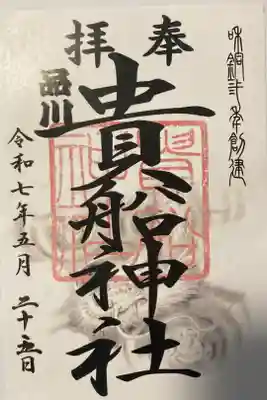 咊銅弐年創建
奉拝
品川
貴船神社
令和七年五月二十五日